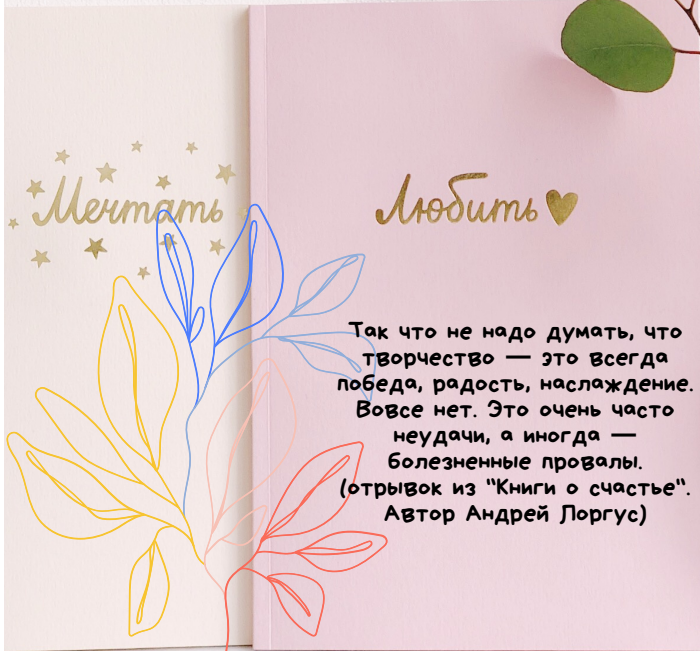 Мечтать
Любить
Так что не надо думать, что
творчество — это всегда
победа, радость, наслаждение.
Вовсе нет. Это очень часто
неудачи, а иногда —
болезненные провалы.
(отрывок из "Книги о счастье".
Автор Андрей Лоргус)